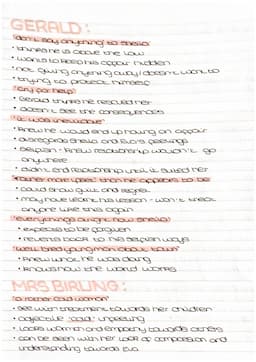 GERALD:
"don't say anything to Sheila"
• thinks he is above the law
• wants to keep his affair hidden
• not giving anything away / doesn't want to
• trying to protect himself
"cry for help"
• Gerald thinks he rescued her
• doesn't see the consequences
"it was inevitable"
• knew he would end up having an affair
• disregards Sheila and Eva's feelings
• selfish - knew relationship wouldn't go
anywhere
• didn't end relationship until it suited her
"rather more upset than he appears to be
• could show guilt and regret
• may have learnt his lesson - won't treat
anyone like this again
"everything's alright now Sheila"
• expects to be forgiven
• reverts back to his selfish ways
"well bred young man about town"
• knew what he was doing
• knows how the world works
MRS BIRLING:
"a rather cold woman"
• see with treatment towards her children
• adjective "cold" unfeeling
• lacks warmth and empathy towards others
• can be seen with her lack of compassion and
understanding towards Eva